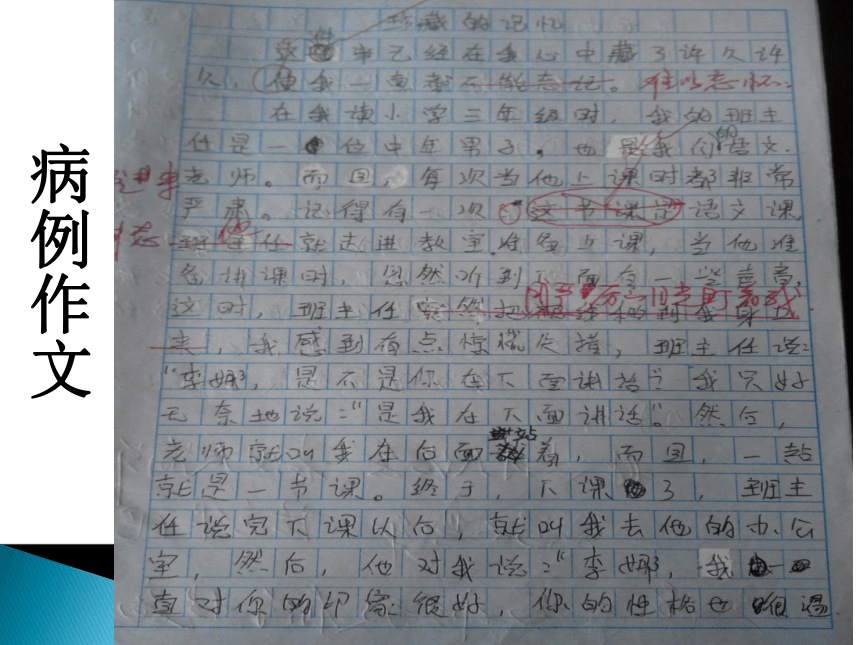 病例作文
珍藏的记忆
这件事已经在我心中藏了许久许
久,使我一直都不能忘记。难以忘怀
在我读小学三年级时,我的班主
任是一位中年男子,也是我们的语文
老师。而且,每次当他上课时都非常
严肃。记得有一次这节课是语文课,
班主任就走进教室准备上课,当他准
备讲课时,忽然听到下面有一些声音,
这时,班主任突然把
来,我感到有点惊慌失措,班主任说:
“李娜,是不是你在下面讲话”我只好
无奈地说:“是我在下面讲话”。然后,
老师就叫我在后面站着,而且,一站
就是一节课。终于,下课了,班主
任说完下课以后,就叫我去他的办公
室,然后,他对我说:“李娜,我一
直对你的印象很好,你的性格也